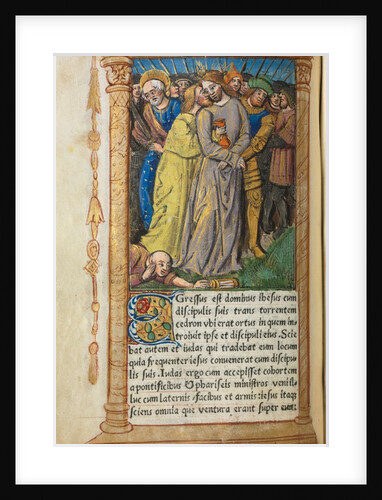 EGressus est dominus ihesus cum
discipulis suis trans torrentem
cedron vbi erat ortus in quem in
troiuit ipse et discipuli eius. Scie
bat autem et iudas qui tradebat eum locum
quia frequenter iesus conuenerat cum discipu
lis suis. Iudas ergo cum accepisset cohortem
a pontificibus & phariseis ministros venit il
luc cum laternis & facibus et armis: iesus itaq
sciens omnia que ventura erant super eum: